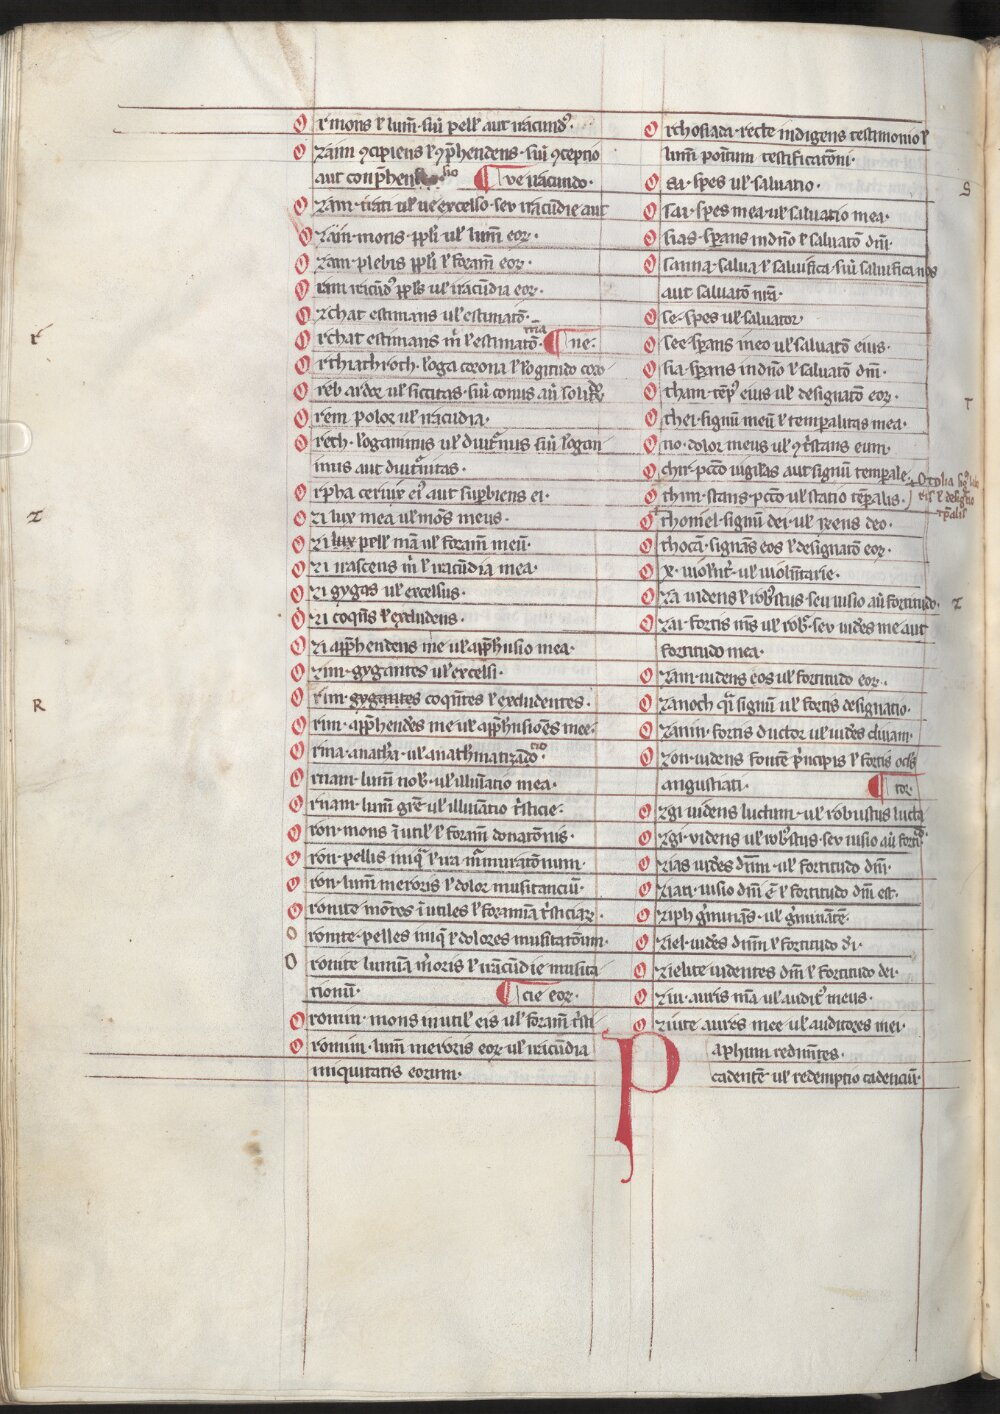 O r mons ł lumē· siū pelł aut iracund᷒·
O zann ꝯcipiens ł ꝯp̄hendens· siū ꝯceptio
aut conp̄hen sio ¶ ue iracundo·
O zam· irati uł ue excelso· seu iracūdie aut
O zam· mons pplī uł lumē eoꝝ·
O zam· plebis pplī ł foramē eoꝝ·
O ram iracūd᷒ ppls uł iracūdia eoꝝ·
O rchat estimans uł estimatō·
O rchat estimans m̄ ł estimatō· ma ¶ ne·
O rthiathroth· loga corona ł logitudo coro
O reb ardor uł siccitas· siū conus aū soli
O rem poloꝝ uł iracūdia·
O rech· loganimis uł diut᷒nus siū logan
imis aut diuturnitas·
O rpha ceruix ei᷒ aut sup̄biens ei·
O ri lux mea uł mōs meus·
O ri lux pelł mā uł foramē meū·
O ri irascens m̄ ł iracūdia mea·
O ri gygas uł excelsus·
O ri coqn̄s ł excludens·
O ri app̄hendens me uł app̄hēsio mea·
O rim· gygantes uł excelsi·
O rim· gygantes coqn̄tes ł excludentes·
O rim· app̄hendēs me uł app̄hēsiōes mee·
O rma· anathā· uł anathmatizādo· cio
O rnam· lumē nob᷒· uł illuīatio mea·
O rnam· lumē grē uł illuīatio t̄sticie·
O ron· mons īutił ł foramē donatōnis·
O ron· pellis iniq̄ ł ira m᷒muratōnum·
O ron· lumē meroris ł dolor musitanciū·
O ronite mōtes īutiles ł foramīa t̄sticiaꝝ·
O ronite· pelles iniq̄ ł dolores musitatōnum·
O ronite lumīa m̄oris ł iracūdie musita
tionū· ¶ cie eoꝝ·
O ronim· mons inutił eis uł foramē t̄sti
O ronim· lumē meroris eoꝝ· uł iracūdia
iniquitatis eorum·
O rchosiada· recte indigens testimonio ł
lumē pontum testificatōni·
O sa· spes uł saluatio·
O sai· spes mea· uł saluatio mea·
O sias· sp̄ans in dn̄o ł saluatō dn̄i·
O sanna· salua ł saluifica· siū saluifica nos
aut saluatō nr̄a·
O se· spes uł saluator
O see· sp̄ans meo uł saluatō eius·
O sia· sp̄ans in dn̄o ł saluatō dn̄i·
O tham· tēp᷒ eius uł designatō eoꝝ·
O thei· signū meū ł temp̄alitas mea·
O no· dolor meus uł ꝯt̄stans eum·
O chir· pc̄co uigilas aut signū temp̄ale·
O thim· stans· pc̄co uł statio tēp̄alis·
O thoniel· signū dei· uł rn̄ens deo·
O thocā· signās eos ł designatō eoꝝ·
O x· uiolēt᷒· uł uiolūtarie·
O za uidens ł rob᷒stus· seu uisio aū fortitudo·
O zai· fortis m̄s uł rob᷒· seu uidēs me aut
fortitudo mea·
O zam· uidens eos uł fortitudo eoꝝ·
O zanoch q̄i signū uł fortis designatio·
O zanin· fortis ductor uł uidēs clauam·
O zon· uidens fontē p̄ncipis ł fortis ocls
angustiati· ¶ tor·
O zgi uidens luctum· uł robustus lucta
O zgi· videns uł rob᷒stus· seu uisio aū forti
O zias uidēs dn̄m· uł fortitudo dn̄i·
O ziazi· uisio dn̄i ē ł fortitudo dn̄i est·
O ziph g᷒minās· uł g᷒minātē·
O ziel· uidēs dn̄m ł fortitudo di·
O zielite uidentes dn̄m ł fortitudo dei·
O zin· auris mā uł audit᷒ meus·
O ziite aures mee uł auditores mei·
P aphum redimn̄tes·
cadentē uł redemptio cadenciū·
r
z
R
S
T
Z